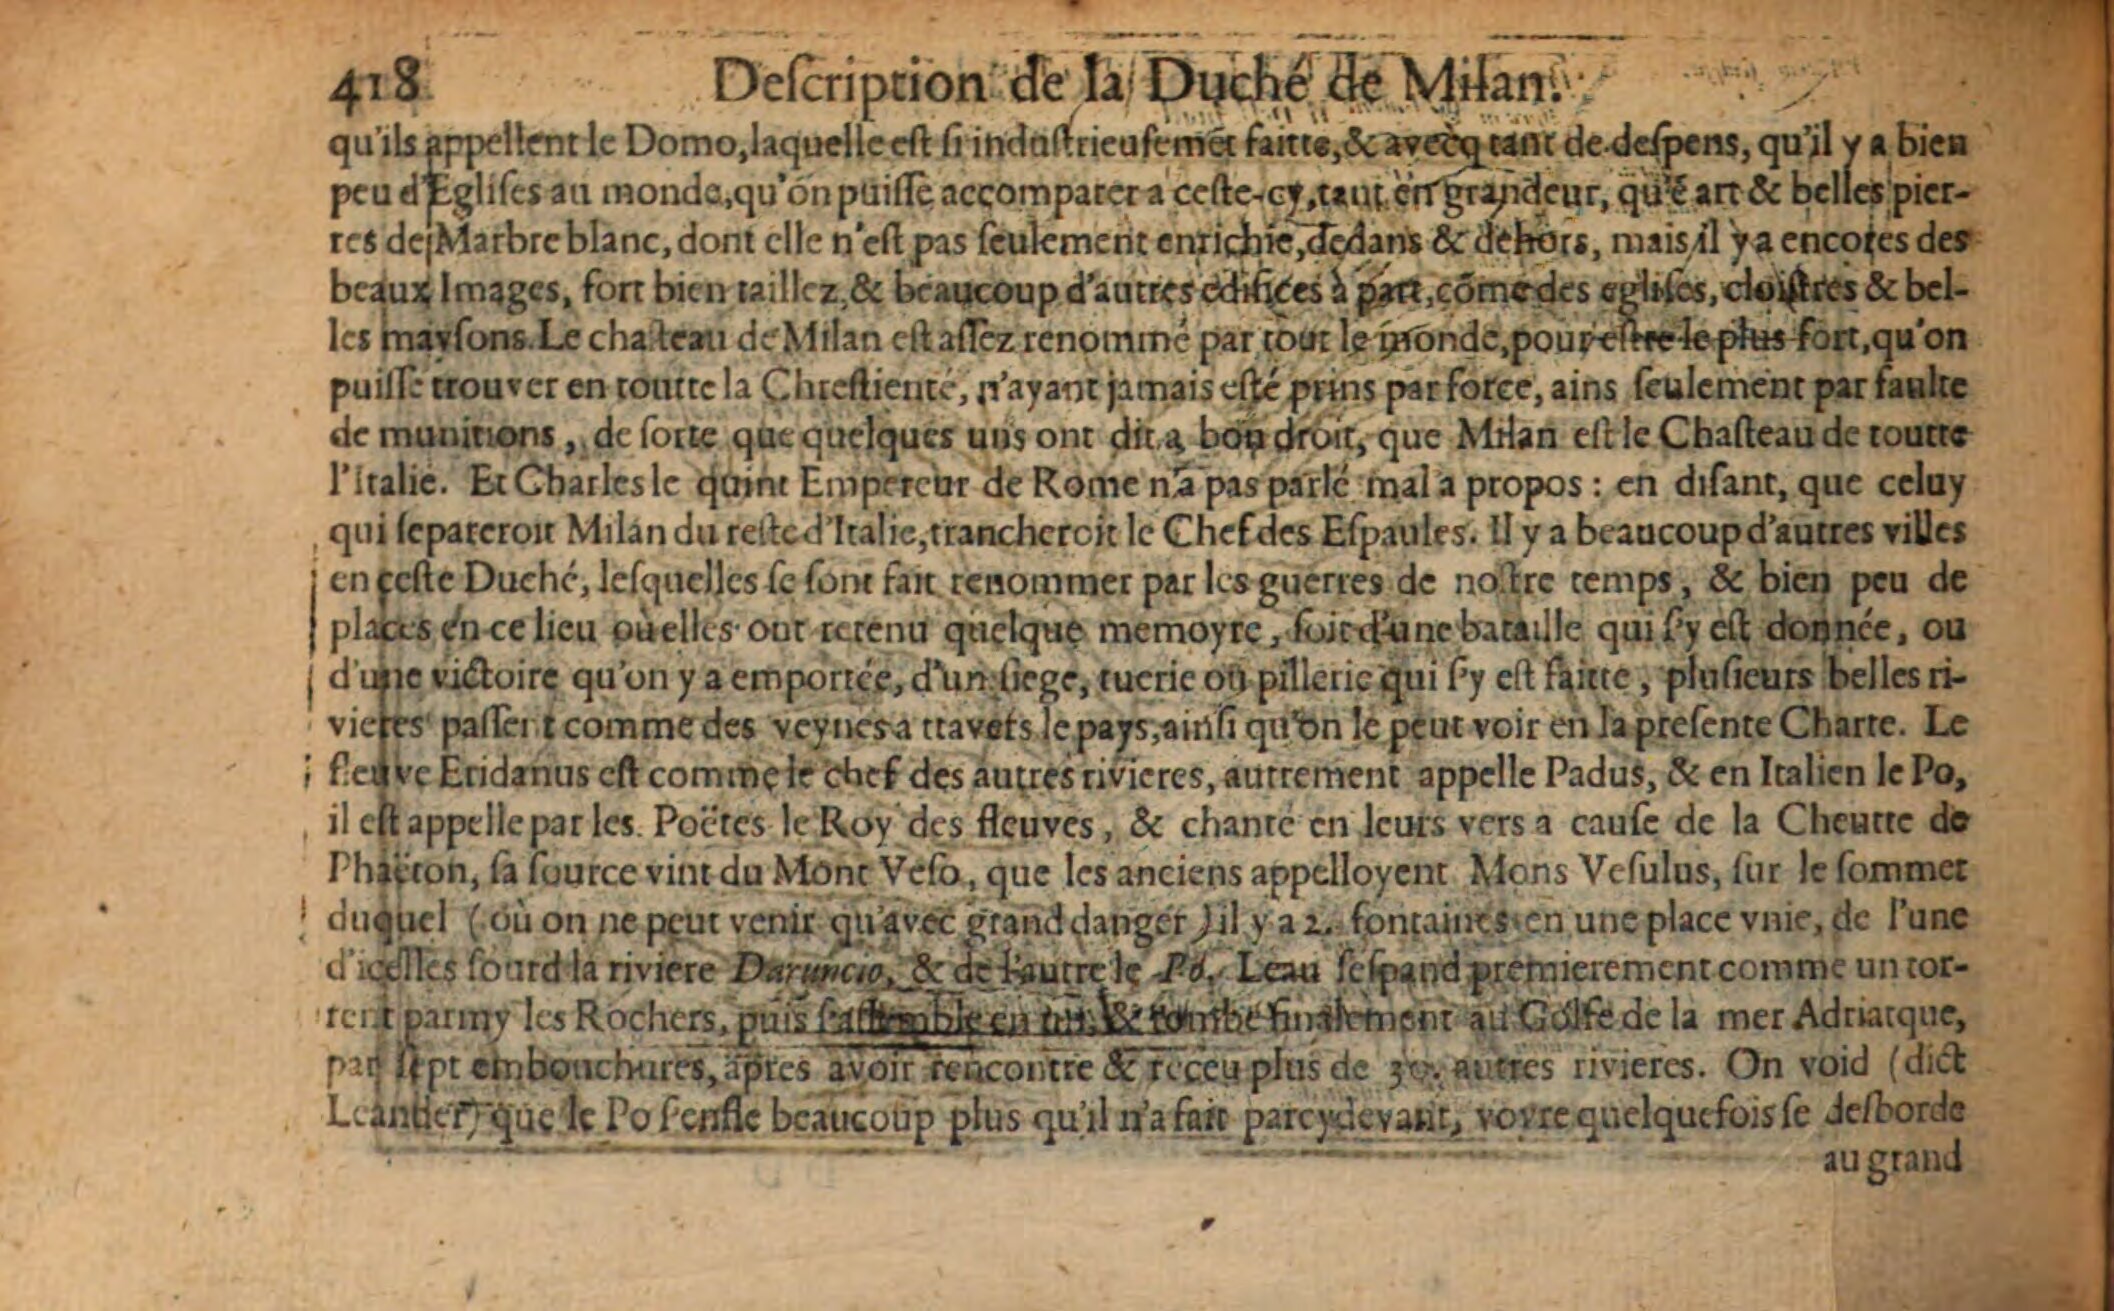 418 Deſcription de la Duché de Milan.
qu'ils appellent le Domo, laquelle eſt ſi induſtrieuſemẽt faitte, & avecq tant de deſpens, qu'il y a bien
peu d'Egliſes au monde, qu'on puiſſe accomparer a ceſte-cy, tant en grandeur, qu'ẽ art & belles pier-
res de Marbre blanc, dont elle n'eſt pas ſeulement enrichie, dedans & dehors, mais il y a encores des
beaux Images, fort bien taillez, & beaucoup d'autres edifices à part, cõme des egliſes, cloiſtres & bel-
les mayſons. Le chaſteau de Milan eſt aſſez renommé par tout le monde, pour eſtre le plus fort, qu'on
puiſſe trouver en toutte la Chreſtienté, n'ayant jamais eſté prins par force, ains ſeulement par faulte
de munitions, de ſorte que quelques uns ont dit a bon droit, que Milan eſt le Chaſteau de toutte
l'Italie. Et Charles le quint Empereur de Rome n'a pas parlé mal a propos : en diſant, que celuy
qui ſepareroit Milan du reſte d'Italie, trancheroit le Chef des Eſpaules. Il y a beaucoup d'autres villes
en ceſte Duché, leſquelles ſe ſont fait renommer par les guerres de noſtre temps, & bien peu de
places en ce lieu où elles ont retenu quelque memoyre, ſoit d'une bataille qui ſ'y eſt donnée, ou
d'une victoire qu'on y a emportée, d'un ſiege, tuerie ou pillerie qui ſ'y eſt faitte, pluſieurs belles ri-
vieres paſſent comme des veynes a travers le pays, ainſi qu'on le peut voir en la preſente Charte. Le
fleuve Eridanus eſt comme le chef des autres rivieres, autrement appelle Padus, & en Italien le Po,
il eſt appelle par les Poëtes le Roy des fleuves, & chanté en leurs vers a cauſe de la Cheutte de
Phaëton, ſa ſource vint du Mont Veſo, que les anciens appelloyent Mons Veſulus, ſur le ſommet
duquel (où on ne peut venir qu'avec grand danger) il y a 2. fontaines en une place vnie, de l'une
d'icelles ſourd la riviere Daruncio, & de l'autre le Po. Leau ſeſpand premierement comme un tor-
rent parmy les Rochers, puis ſ'aſſemble en un, & tombe finalement au Golfe de la mer Adriatque,
par ſept embouchures, apres avoir rencontre & receu plus de 30. autres rivieres. On void (dict
Leander) que le Po ſ'enfle beaucoup plus qu'il n'a fait parcydevant, voyre quelquefois ſe deſborde
au grand